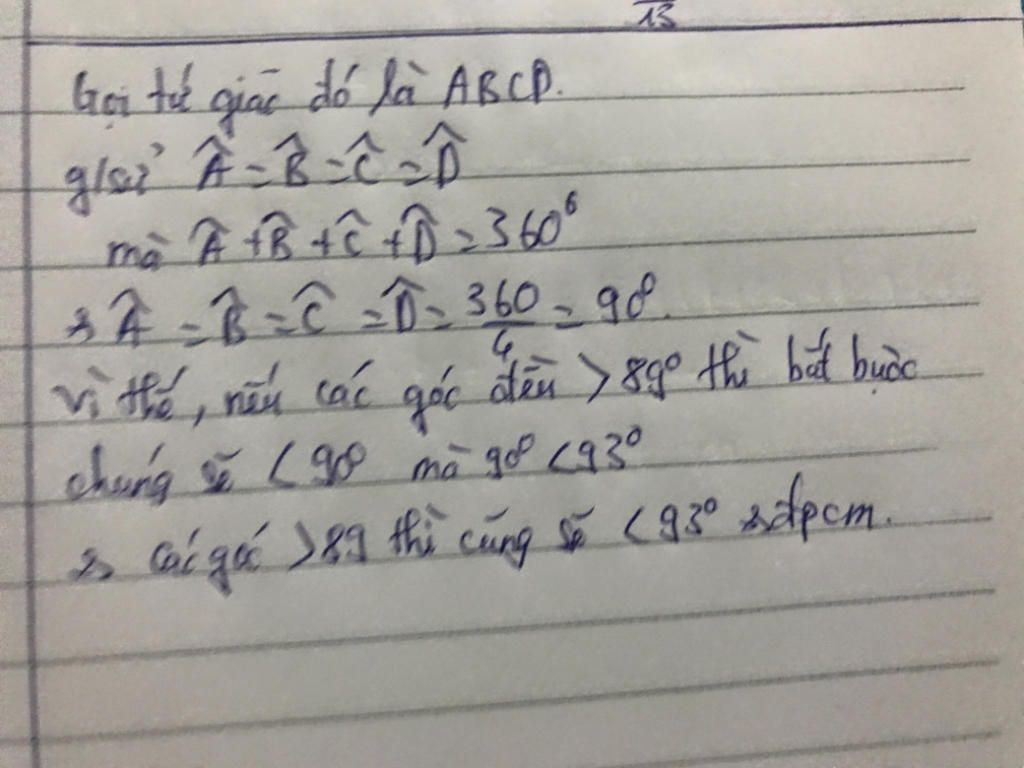 13
Gọi tứ giác đó là ABCD.
g/sử Â = B̂ = Ĉ = D̂
mà Â + B̂ + Ĉ + D̂ = 360°
→ Â = B̂ = Ĉ = D̂ = 360/4 = 90°.
Vì thế, nếu các góc đều > 89° thì bắt buộc
chúng sẽ < 90° mà 90° < 93°
→ các góc > 89 thì cũng sẽ < 93° → đpcm.